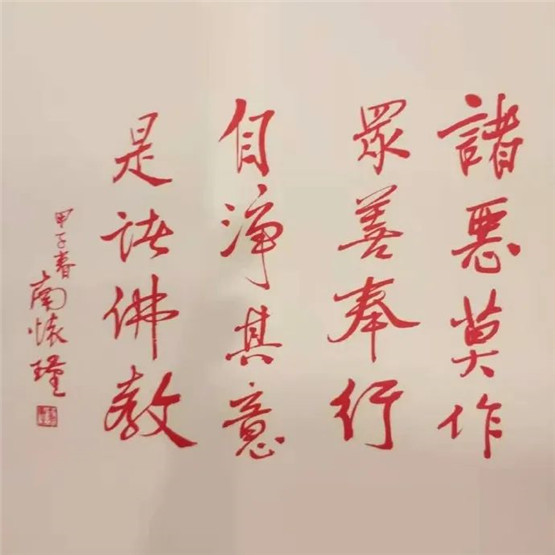 諸惡莫作
眾善奉行
自淨其意
是諸佛教
甲子春 南懷瑾